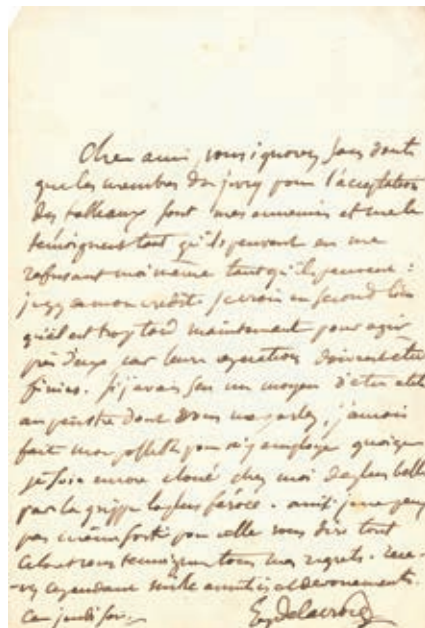 Cher ami, vous ignorez sans doute
que les membres du jury pour l'acceptation
des tableaux sont mes ennemis et me le
témoignent tant qu'ils peuvent en me
refusant moi même tant qu'ils peuvent :
jugez de mon crédit. je crois en second lieu
qu'il est trop tard maintenant pour agir
près d'eux car leurs opérations doivent être
finies. Si j'avais su un moyen d'être utile
au peintre dont vous me parlez, j'aurais
fait mon possible pour m'y employer quoique
je sois encore cloué chez moi de plus belle
par la grippe la plus féroce. ainsi je ne peux
pas même sortir pour aller vous dire tout
cela et vous témoigner tous mes regrets. rece-
-vez cependant mille amitiés et dévouements.
Ce jeudi soir. Eug Delacroix